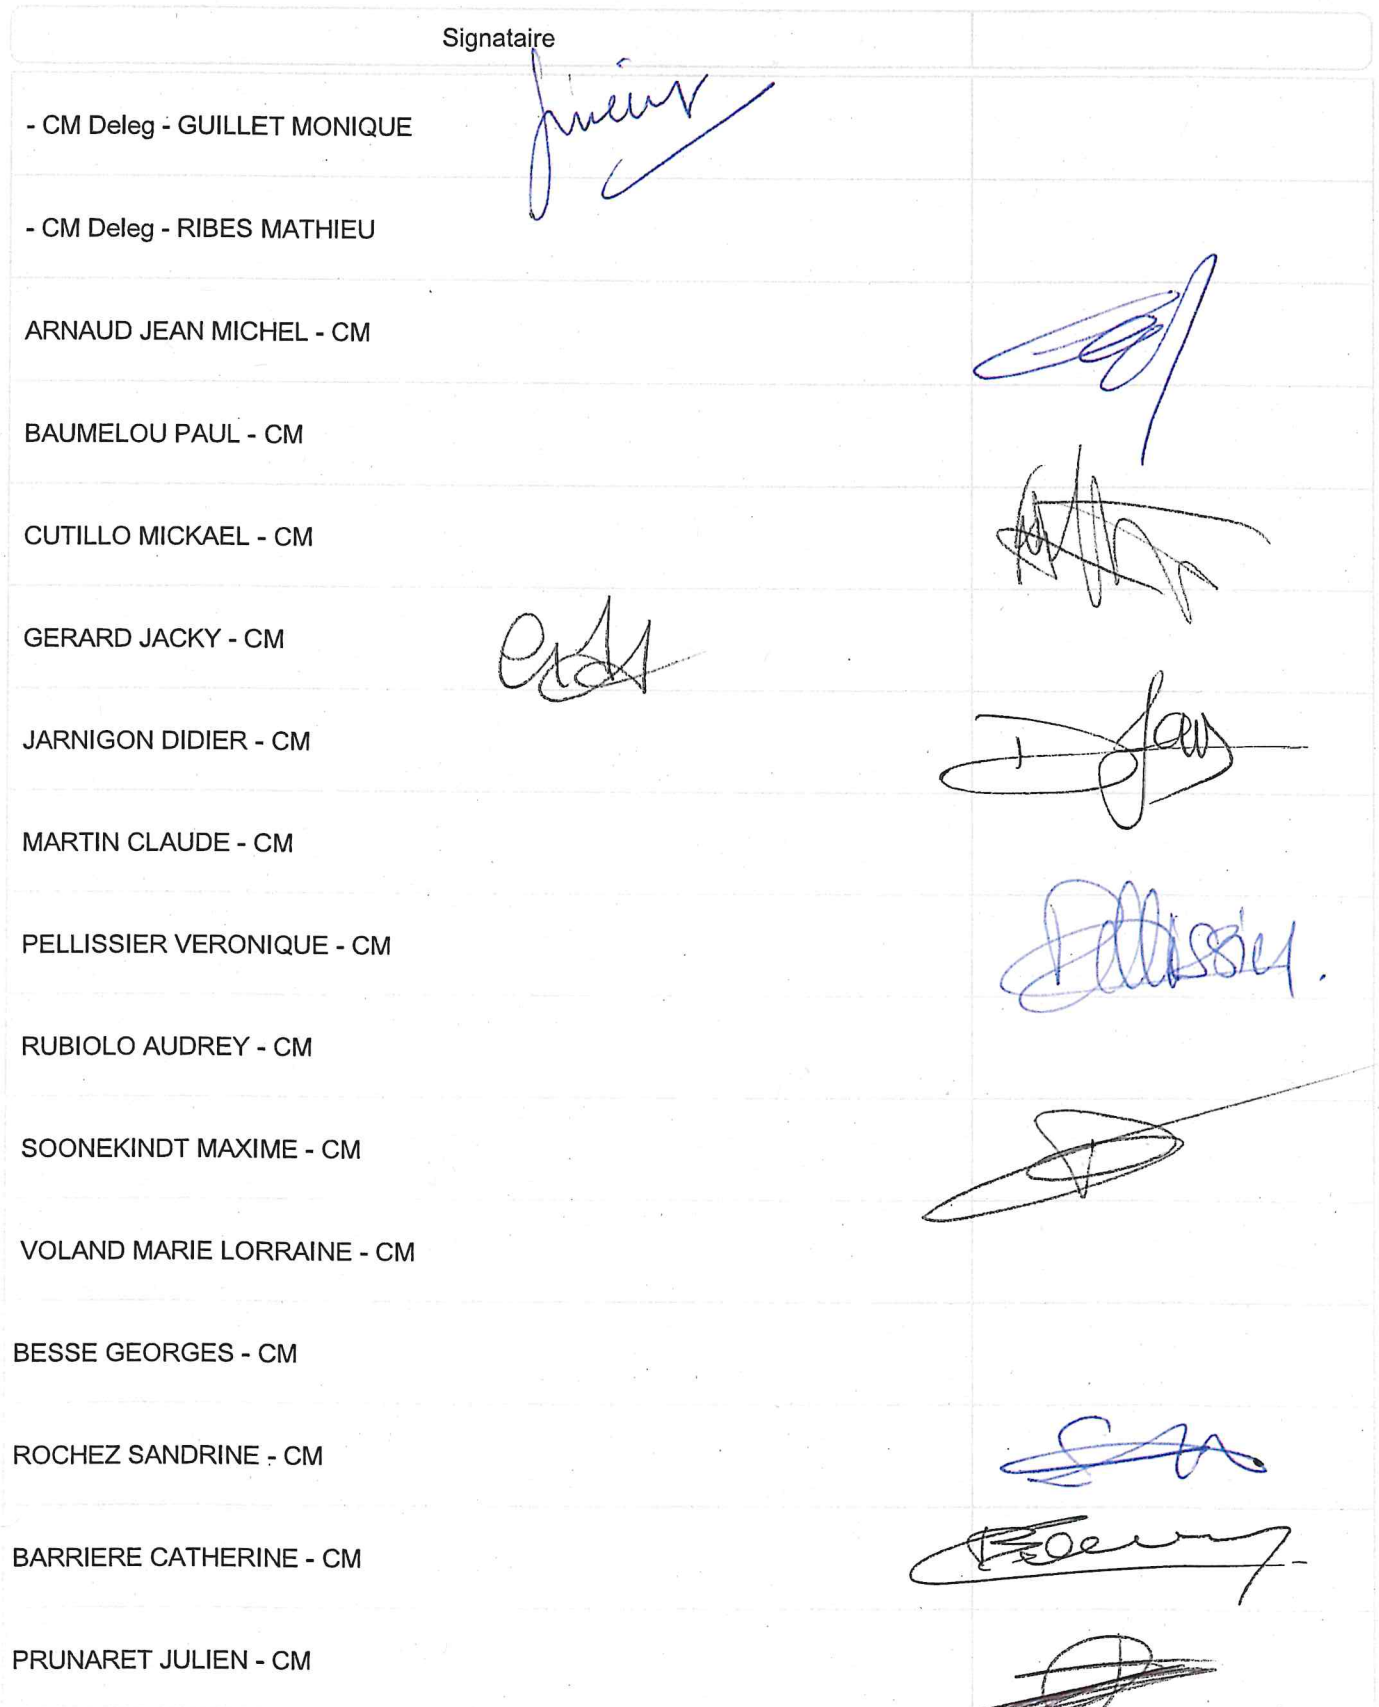 Signataire
- CM Deleg - GUILLET MONIQUE
- CM Deleg - RIBES MATHIEU
ARNAUD JEAN MICHEL - CM
BAUMELOU PAUL - CM
CUTILLO MICKAEL - CM
GERARD JACKY - CM
JARNIGON DIDIER - CM
MARTIN CLAUDE - CM
PELLISSIER VERONIQUE - CM
Pellissier.
RUBIOLO AUDREY - CM
SOONEKINDT MAXIME - CM
VOLAND MARIE LORRAINE - CM
BESSE GEORGES - CM
ROCHEZ SANDRINE - CM
BARRIERE CATHERINE - CM
PRUNARET JULIEN - CM